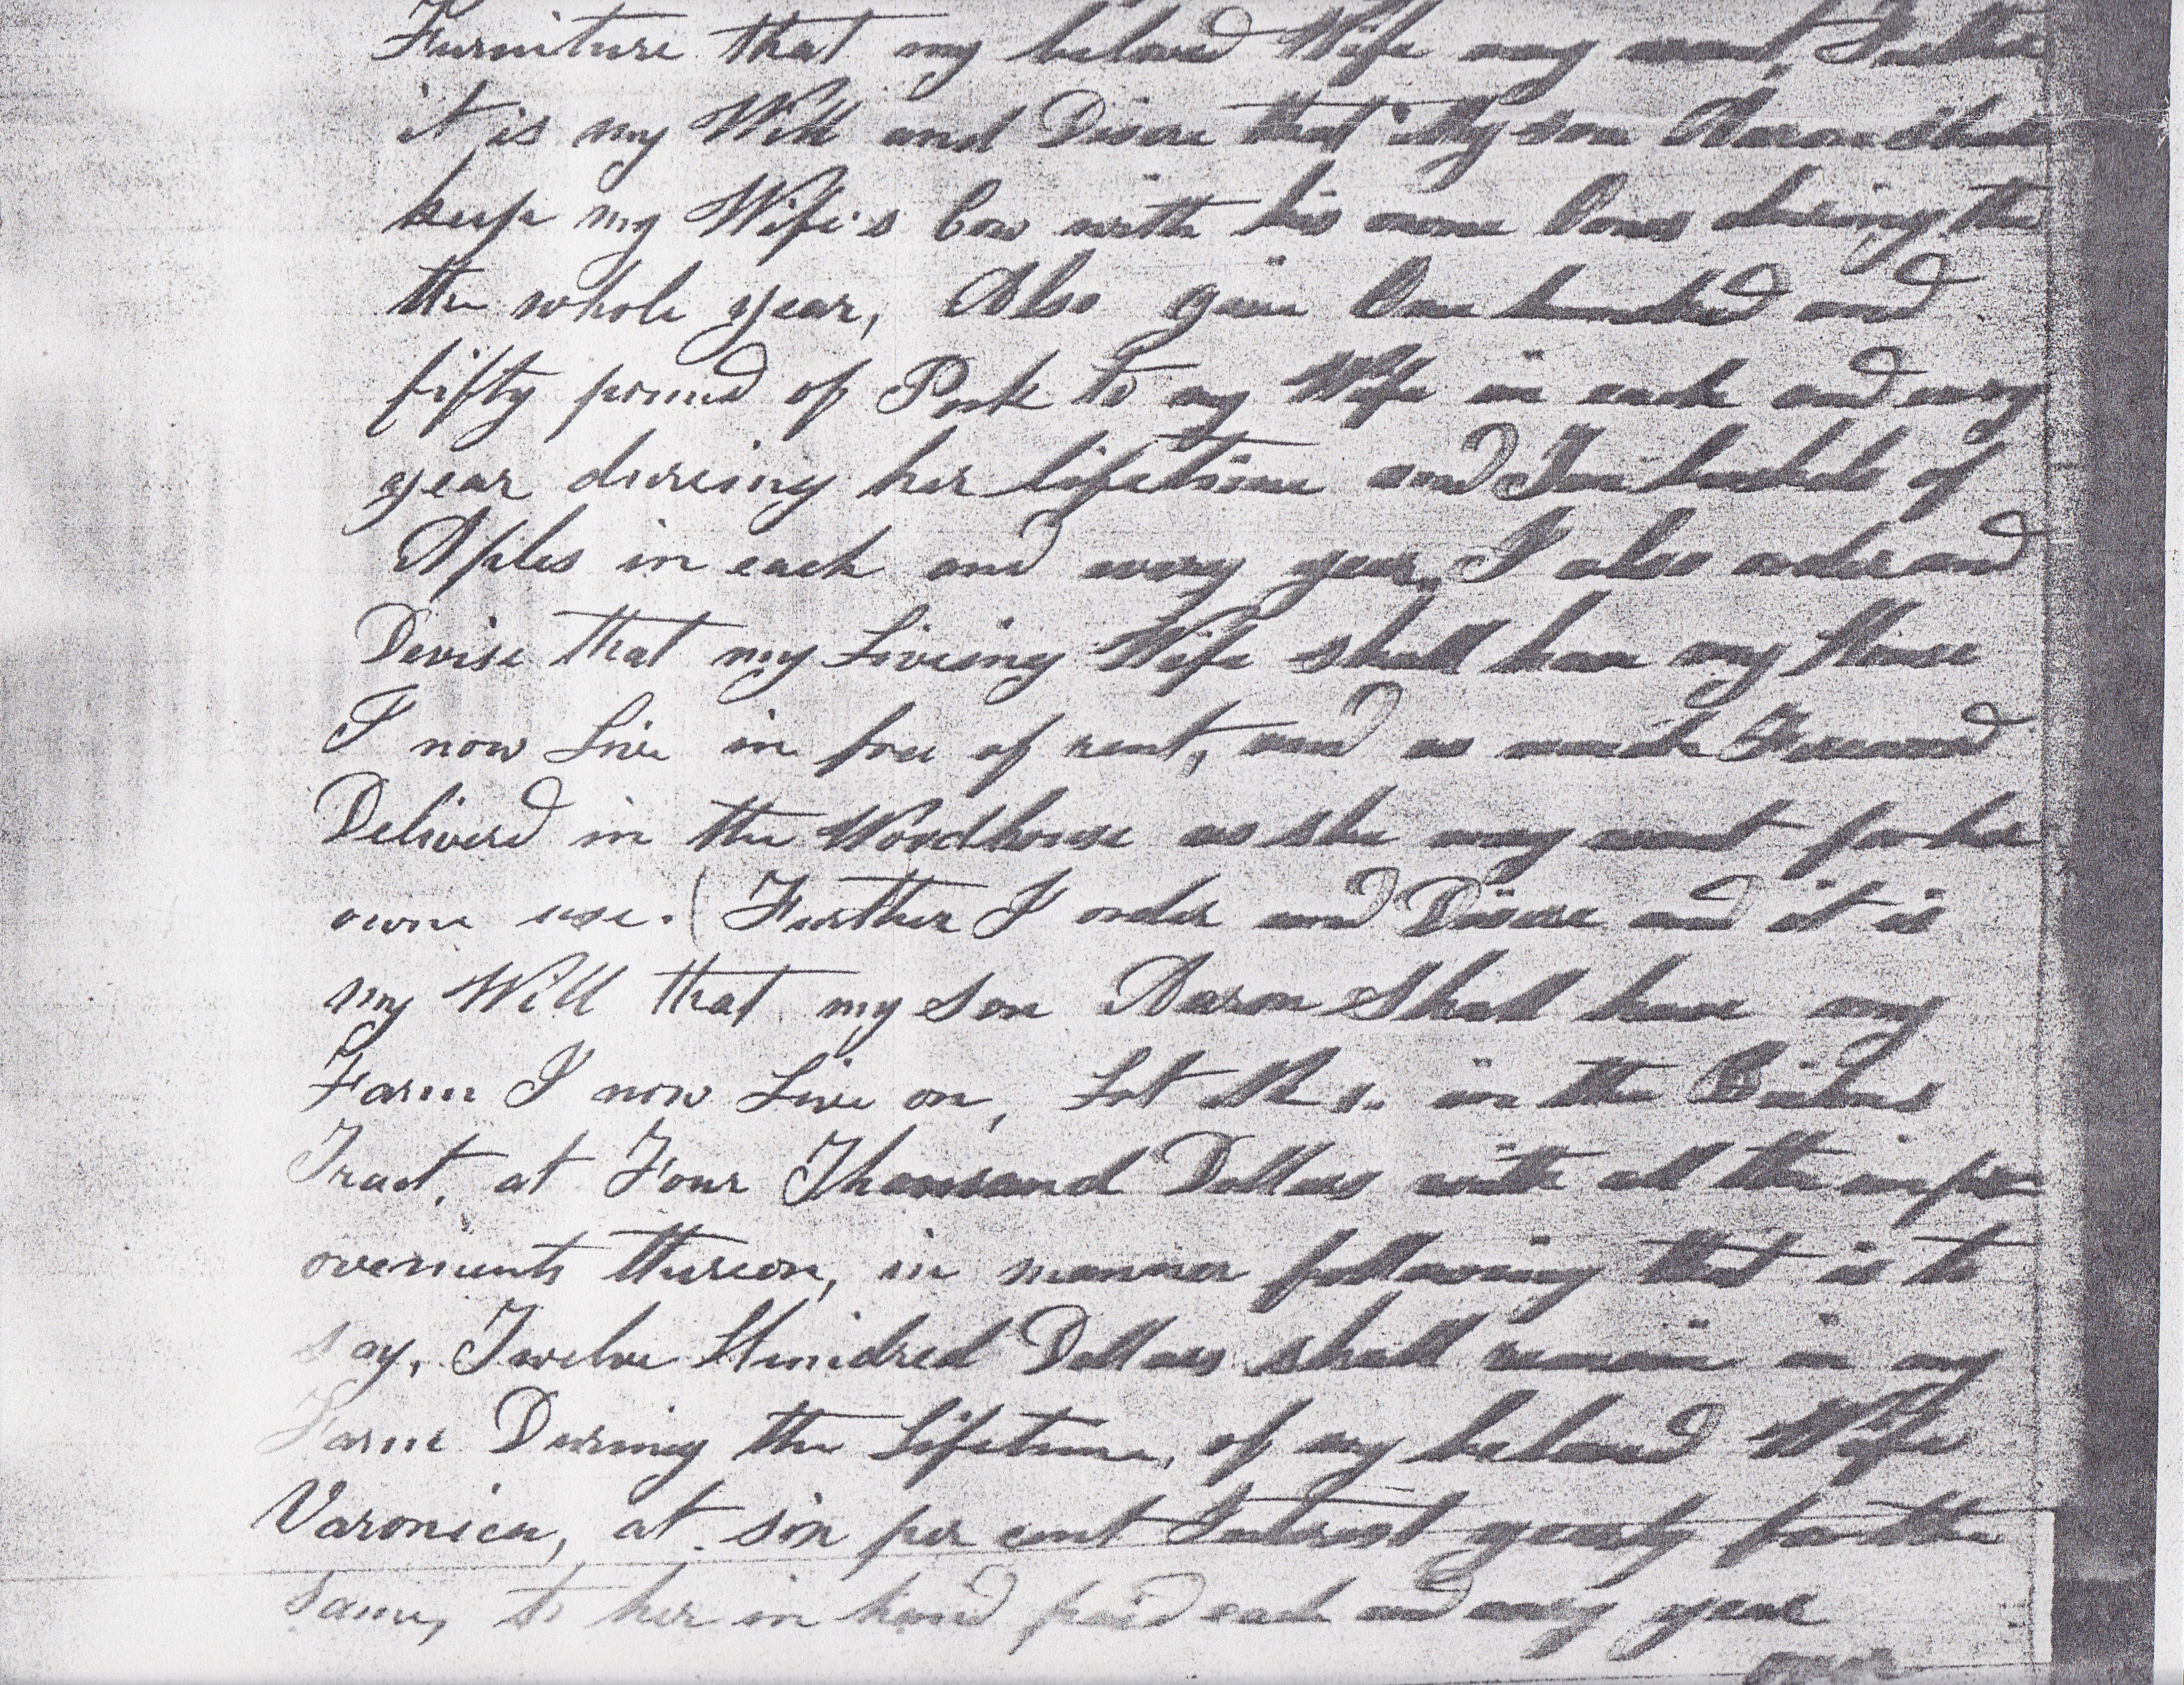 Furniture that my beloved Wife may want, Further
it is my Will and Disire that My son Aaron shall
keep my Wife's Cow with his owne Cows dureing the
the whole year, Also give One hundred and
fifty pound of Pork to my Wife in each and every
year dureing her lifetime and Ten bushels of
Aples in each and every year, I also order and
Devise that my Liveing Wife shall have my House
I now Live in free of rent, and as much Firewood
Deliverd in the Woodhouse as she may want for her
owne use. (Further I order and Disire and it is
my Will that my Son Aaron Shall have my
Farm I now Live on, Lot in the
Tract, at Four Thousand Dollars with all the impr
ovements thereon, in manner following that is to
say, Twelve Hundred Dollars shall remain in my
Farm During the Lifetime, of my beloved Wife
Varonica, at six per cent Interest yearly for the
Same, to her in hand paid each and every year